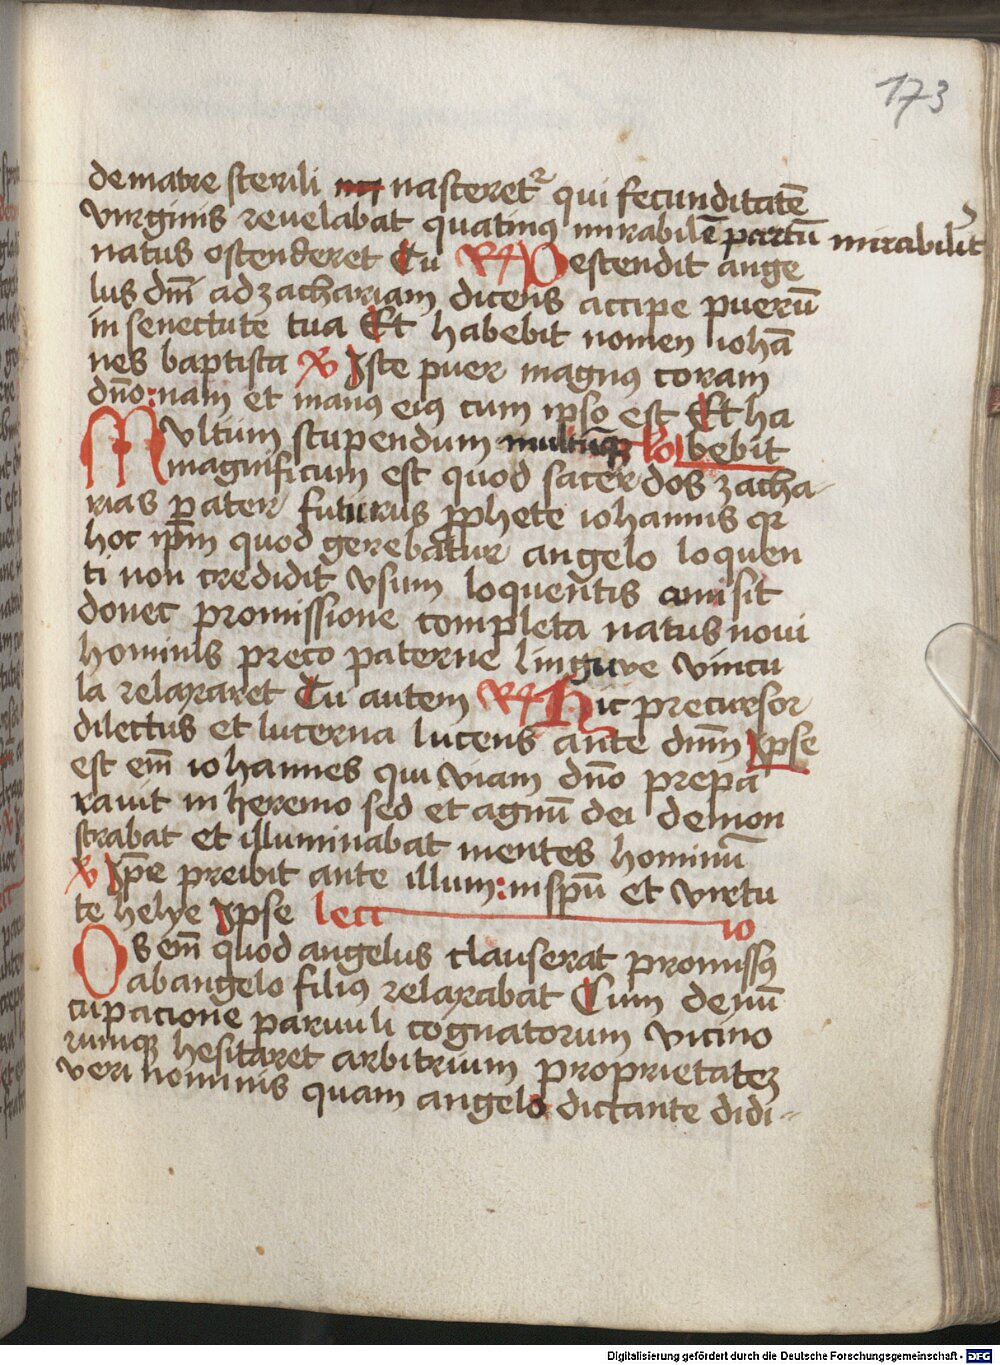 173
de matre sterili nasceret² qui fecunditatē
virginis reuelabat quatinꝯ mirabilē partū mirabilit᷑
natus ostenderet Tu R Descendit ange
lus dn̄i ad zachariam dicens accipe puerū
in senectute tua Et habebit nomen iohā
nes baptista V Iste puer magnꝯ coram
dn̄o: nam et manꝯ eiꝯ cum ipso est Et ha
Multum stupendum multūqꝫ bebit
magnificum est quod sacerdos zacha-
rias pater futurus ꝓphete iohannis qꝛ
hoc ip̄m quod gerebatur angelo loquen
ti non credidit vsum loquentis amisit
donec promissione completa natus noui
hominis preco paterne lingwe vincu
la relaxaret Tu autem R Hic precursor
dilectus et lucerna lucens ante dn̄m Ipse
est em̄ iohannes qui viam dn̄o prepa
rauit in heremo sed et agnū dei demon
strabat et illuminabat mentes hominū
V Ip̄e preibit ante illum: in sp̄u et virtu
te helye Ipse lectio
Os em̄ quod angelus clauserat promissꝯ
ab angelo filiꝯ relaxabat Cum de nū
cupacione paruuli cognatorum vicino
rumqꝫ hesitaret arbitrium proprietatez
veri nominis quam angelo dictante didi-
Digitalisierung gefördert durch die Deutsche Forschungsgemeinschaft - DFG